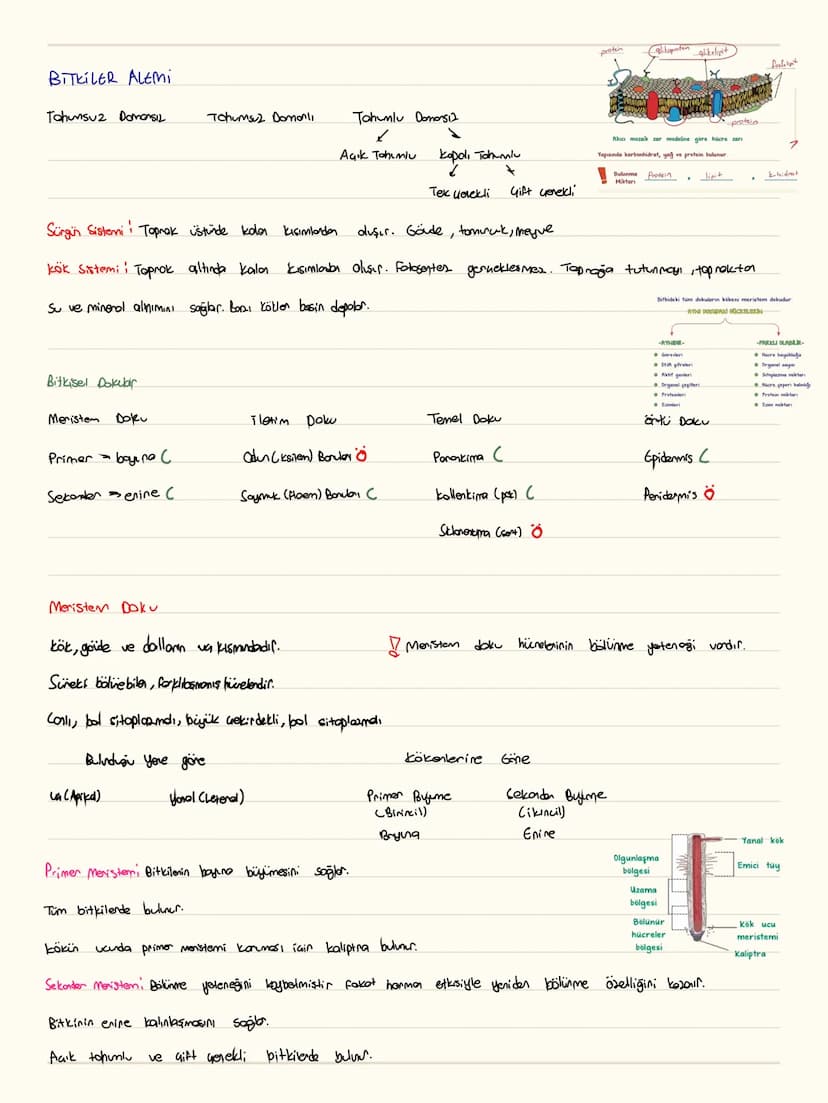 BİTKİLER ALEMİ
Tohumsuz Damarsız
Tohumsuz Damarlı
Tohumlu Damarsız
Açık Tohumlu
Kapalı Tohumlu
Tek çenekli
Çift çenekli
protein
glikoprotein
glikolipit
fosfolipit
protein
Akıcı mozaik zar modeline göre hücre zarı
Yapısında karbonhidrat, yağ ve protein bulunur.
Bulunma Miktarı
Protein , lipit , k.hidrat
Sürgün Sistemi: Toprak üstünde kalan kısımlardan oluşur. Gövde, tomurcuk, meyve
Kök Sistemi: Toprak altında kalan kısımlardan oluşur. Fotosentez gerçekleşmez. Toprağa tutunmayı, topraktan
su ve mineral alınımını sağlar. Bazı kökler besin depolar.
Bitkideki tüm dokuların kökeni meristem dokudur
AYNI
-AYNIDIR-
Genleri
DNA şifreleri
Aktif genleri
Organel çeşitleri
Proteinleri
Enzimleri
-FARKLI OLABİLİR-
Hücre büyüklüğü
Organel sayısı
Sitoplazma miktarı
Hücre çeperi kalınlığı
Protein miktarı
Enzim miktarı
Bitkisel Dokular
Meristem Doku
Primer → boyuna C
Sekonder → enine C
İletim Doku
Odun (ksilem) Boruları Ö
Soymuk (Floem) Boruları C
Temel Doku
Parankima C
Kollenkima (pek) C
Sklerankima (sert) Ö
Örtü Doku
Epidermis C
Peridermis Ö
Meristem Doku
Kök, gövde ve dalların uç kısmındadır.
! Meristem doku hücrelerinin bölünme yeteneği vardır.
Sürekli bölünebilen, farklılaşmamış hücrelerdir.
Canlı, bol sitoplazmalı, büyük çekirdekli, bol sitoplazmalı
Bulunduğu Yere göre
Kökenlerine Göre
Uç (Apikal)
Yanal (Lateral)
Primer Büyüme
(Birincil)
Boyuna
Sekonder Büyüme
(ikincil)
Enine
Primer Meristem: Bitkilerin boyuna büyümesini sağlar.
Tüm bitkilerde bulunur.
Kökün ucunda primer meristemi koruması için kaliptra bulunur.
Olgunlaşma bölgesi
Uzama bölgesi
Bölünür hücreler bölgesi
Yanal kök
Emici tüy
Kök ucu meristemi
Kaliptra
Sekonder Meristem: Bölünme yeteneğini kaybetmiştir fakat hormon etkisiyle yeniden bölünme özelliğini kazanır.
Bitkinin enine kalınlaşmasını sağlar.
Açık tohumlu ve çift çenekli bitkilerde bulunur.